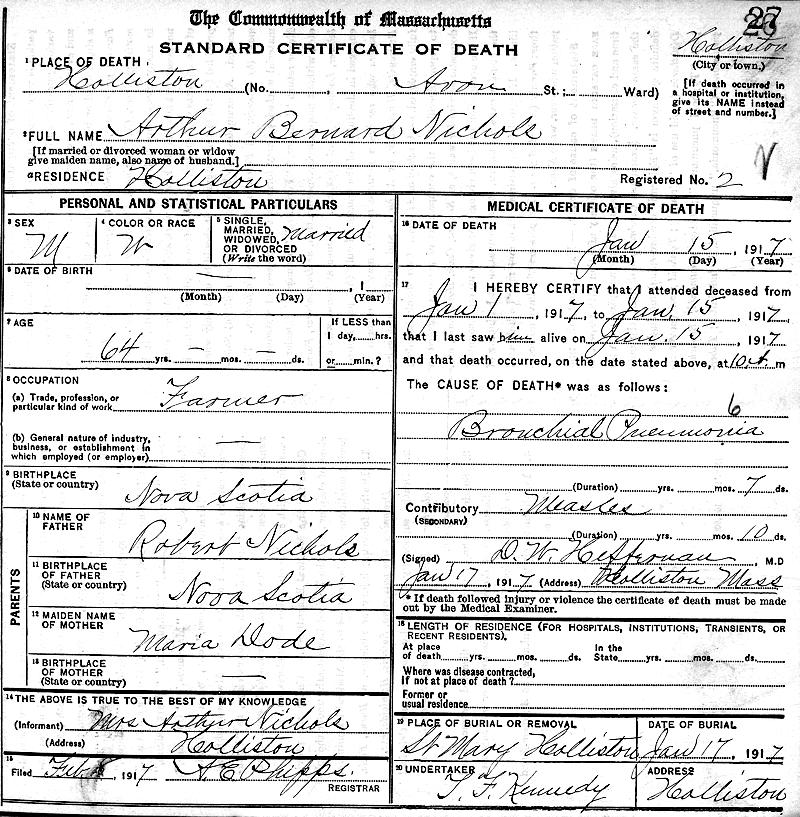 27
The Commonwealth of Massachusetts
STANDARD CERTIFICATE OF DEATH
Holliston
(City or town.)
1 PLACE OF DEATH
Holliston (No. Avon St.; Ward)
[If death occurred in a hospital or institution, give its NAME instead of street and number.]
2 FULL NAME Arthur Bernard Nichols
[If married or divorced woman or widow
give maiden name, also name of husband.]
a RESIDENCE Holliston Registered No. 2
PERSONAL AND STATISTICAL PARTICULARS
3 SEX
M
4 COLOR OR RACE
W
5 SINGLE,
MARRIED,
WIDOWED,
OR DIVORCED
(Write the word)
Married
6 DATE OF BIRTH
—
, 1
(Month) (Day) (Year)
7 AGE
64 yrs. – mos. – ds.
If LESS than
1 day, hrs.
or min.?
8 OCCUPATION
(a) Trade, profession, or
particular kind of work Farmer
(b) General nature of industry,
business, or establishment in
which employed (or employer) —
9 BIRTHPLACE
(State or country)
Nova Scotia
PARENTS
10 NAME OF
FATHER
Robert Nichols
11 BIRTHPLACE
OF FATHER
(State or country)
Nova Scotia
12 MAIDEN NAME
OF MOTHER
Maria Dode
13 BIRTHPLACE
OF MOTHER
(State or country) —
14 THE ABOVE IS TRUE TO THE BEST OF MY KNOWLEDGE
(Informant) Mrs Arthur Nichols
(Address) Holliston
15
Filed Feb , 1917 A E Phipps.
REGISTRAR
MEDICAL CERTIFICATE OF DEATH
16 DATE OF DEATH
Jan 15, 1917
(Month) (Day) (Year)
17 I HEREBY CERTIFY that I attended deceased from
Jan 1, 1917, to Jan. 15, 1917
that I last saw him alive on Jan. 15, 1917
and that death occurred, on the date stated above, at 10 A. m
The CAUSE OF DEATH* was as follows:
6
Bronchial Pneumonia
(Duration) yrs. mos. 7 ds.
Contributory Measles
(SECONDARY)
(Duration) yrs. mos. 10 ds.
(Signed) D. W. Heffernan, M.D
Jan 17, 1917 (Address) Holliston Mass
* If death followed injury or violence the certificate of death must be made
out by the Medical Examiner.
18 LENGTH OF RESIDENCE (FOR HOSPITALS, INSTITUTIONS, TRANSIENTS, OR
RECENT RESIDENTS).
At place In the
of death yrs. mos. ds. State yrs. mos. ds.
Where was disease contracted,
If not at place of death?
Former or
usual residence
19 PLACE OF BURIAL OR REMOVAL
St Mary Holliston
DATE OF BURIAL
Jan 17, 1917
20 UNDERTAKER
T. F. Kennedy
ADDRESS
Holliston